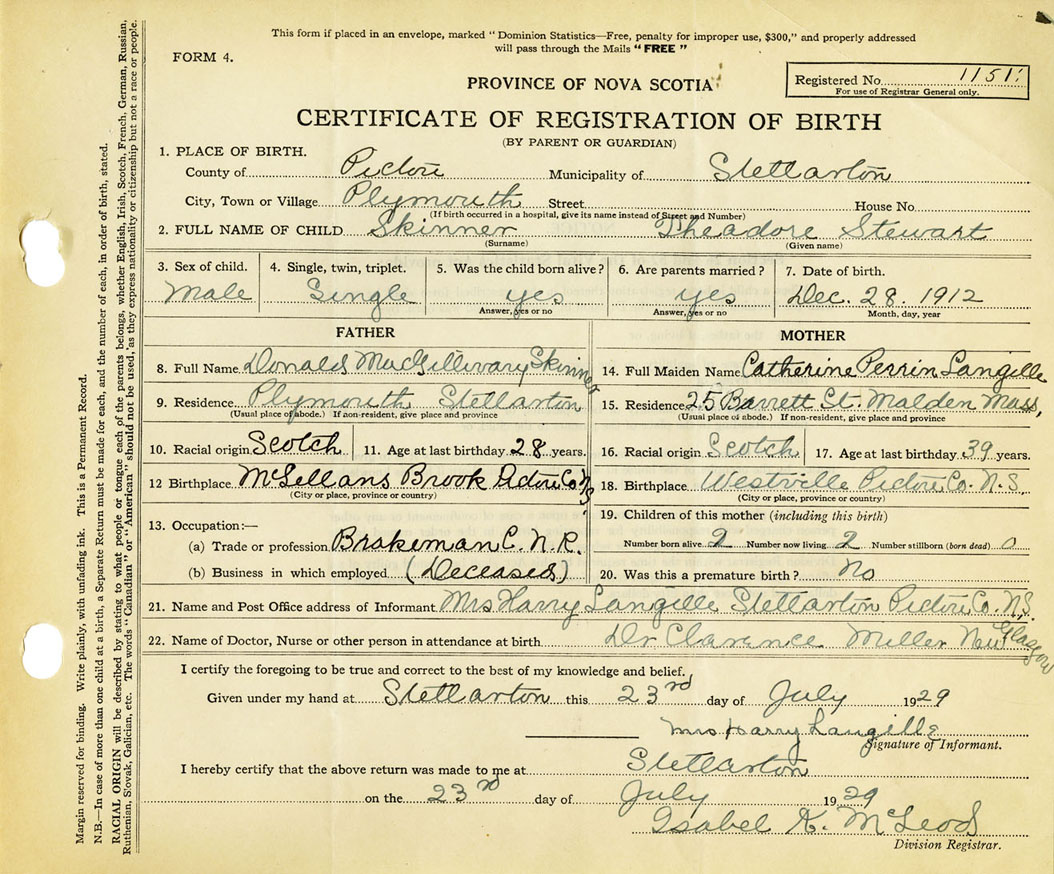 This form if placed in an envelope, marked "Dominion Statistics—Free, penalty for improper use, $300," and properly addressed
will pass through the Mails "FREE"
FORM 4.
PROVINCE OF NOVA SCOTIA
Registered No. 1151
For use of Registrar General only.
CERTIFICATE OF REGISTRATION OF BIRTH
(BY PARENT OR GUARDIAN)
1. PLACE OF BIRTH.
County of Pictou Municipality of Stellarton
City, Town or Village Plymouth Street House No.
(If birth occurred in a hospital, give its name instead of Street and Number)
2. FULL NAME OF CHILD Skinner Theadore Stewart
(Surname) (Given name)
3. Sex of child. 4. Single, twin, triplet. 5. Was the child born alive? 6. Are parents married? 7. Date of birth.
Male Single yes yes Dec. 28. 1912
Answer, yes or no Answer, yes or no Month, day, year
FATHER MOTHER
8. Full Name Donald MacGillivary Skinner 14. Full Maiden Name Catherine Perrin Langille
9. Residence Plymouth Stellarton 15. Residence 25 Barrett St. Malden Mass,
(Usual place of abode.) If non-resident, give place and province (Usual place of abode.) If non-resident, give place and province
10. Racial origin Scotch 11. Age at last birthday 28 years. 16. Racial origin Scotch 17. Age at last birthday 39 years.
12 Birthplace McLellans Brook Pictou Co N.S. 18. Birthplace Westville Pictou Co. N.S.
(City or place, province or country) (City or place, province or country)
13. Occupation:— 19. Children of this mother (including this birth)
(a) Trade or profession Brakeman C.N.R. Number born alive 2 Number now living 2 Number stillborn (born dead) 0
(b) Business in which employed (Deceased) 20. Was this a premature birth? No
21. Name and Post Office address of Informant Mrs Harry Langille Stellarton Pictou Co. N.S.
22. Name of Doctor, Nurse or other person in attendance at birth Dr Clarence Miller New Glasgow
I certify the foregoing to be true and correct to the best of my knowledge and belief.
Given under my hand at Stellarton this 23rd day of July 1929
Mrs Harry Langille
Signature of Informant.
I hereby certify that the above return was made to me at Stellarton
on the 23rd day of July 1929
Isabel K. McLeod
Division Registrar.
Margin reserved for binding. Write plainly, with unfading ink. This is a Permanent Record.
N.B.—In case of more than one child at a birth, a Separate Return must be made for each, and the number of each, in order of birth, stated.
RACIAL ORIGIN will be described by stating to what people or tongue each of the parents belongs, whether English, Irish, Scotch, French, German, Russian,
Ruthenian, Slovak, Galician, etc. The words "Canadian" or "American" should not be used, as they express nationality or citizenship but not a race or people.